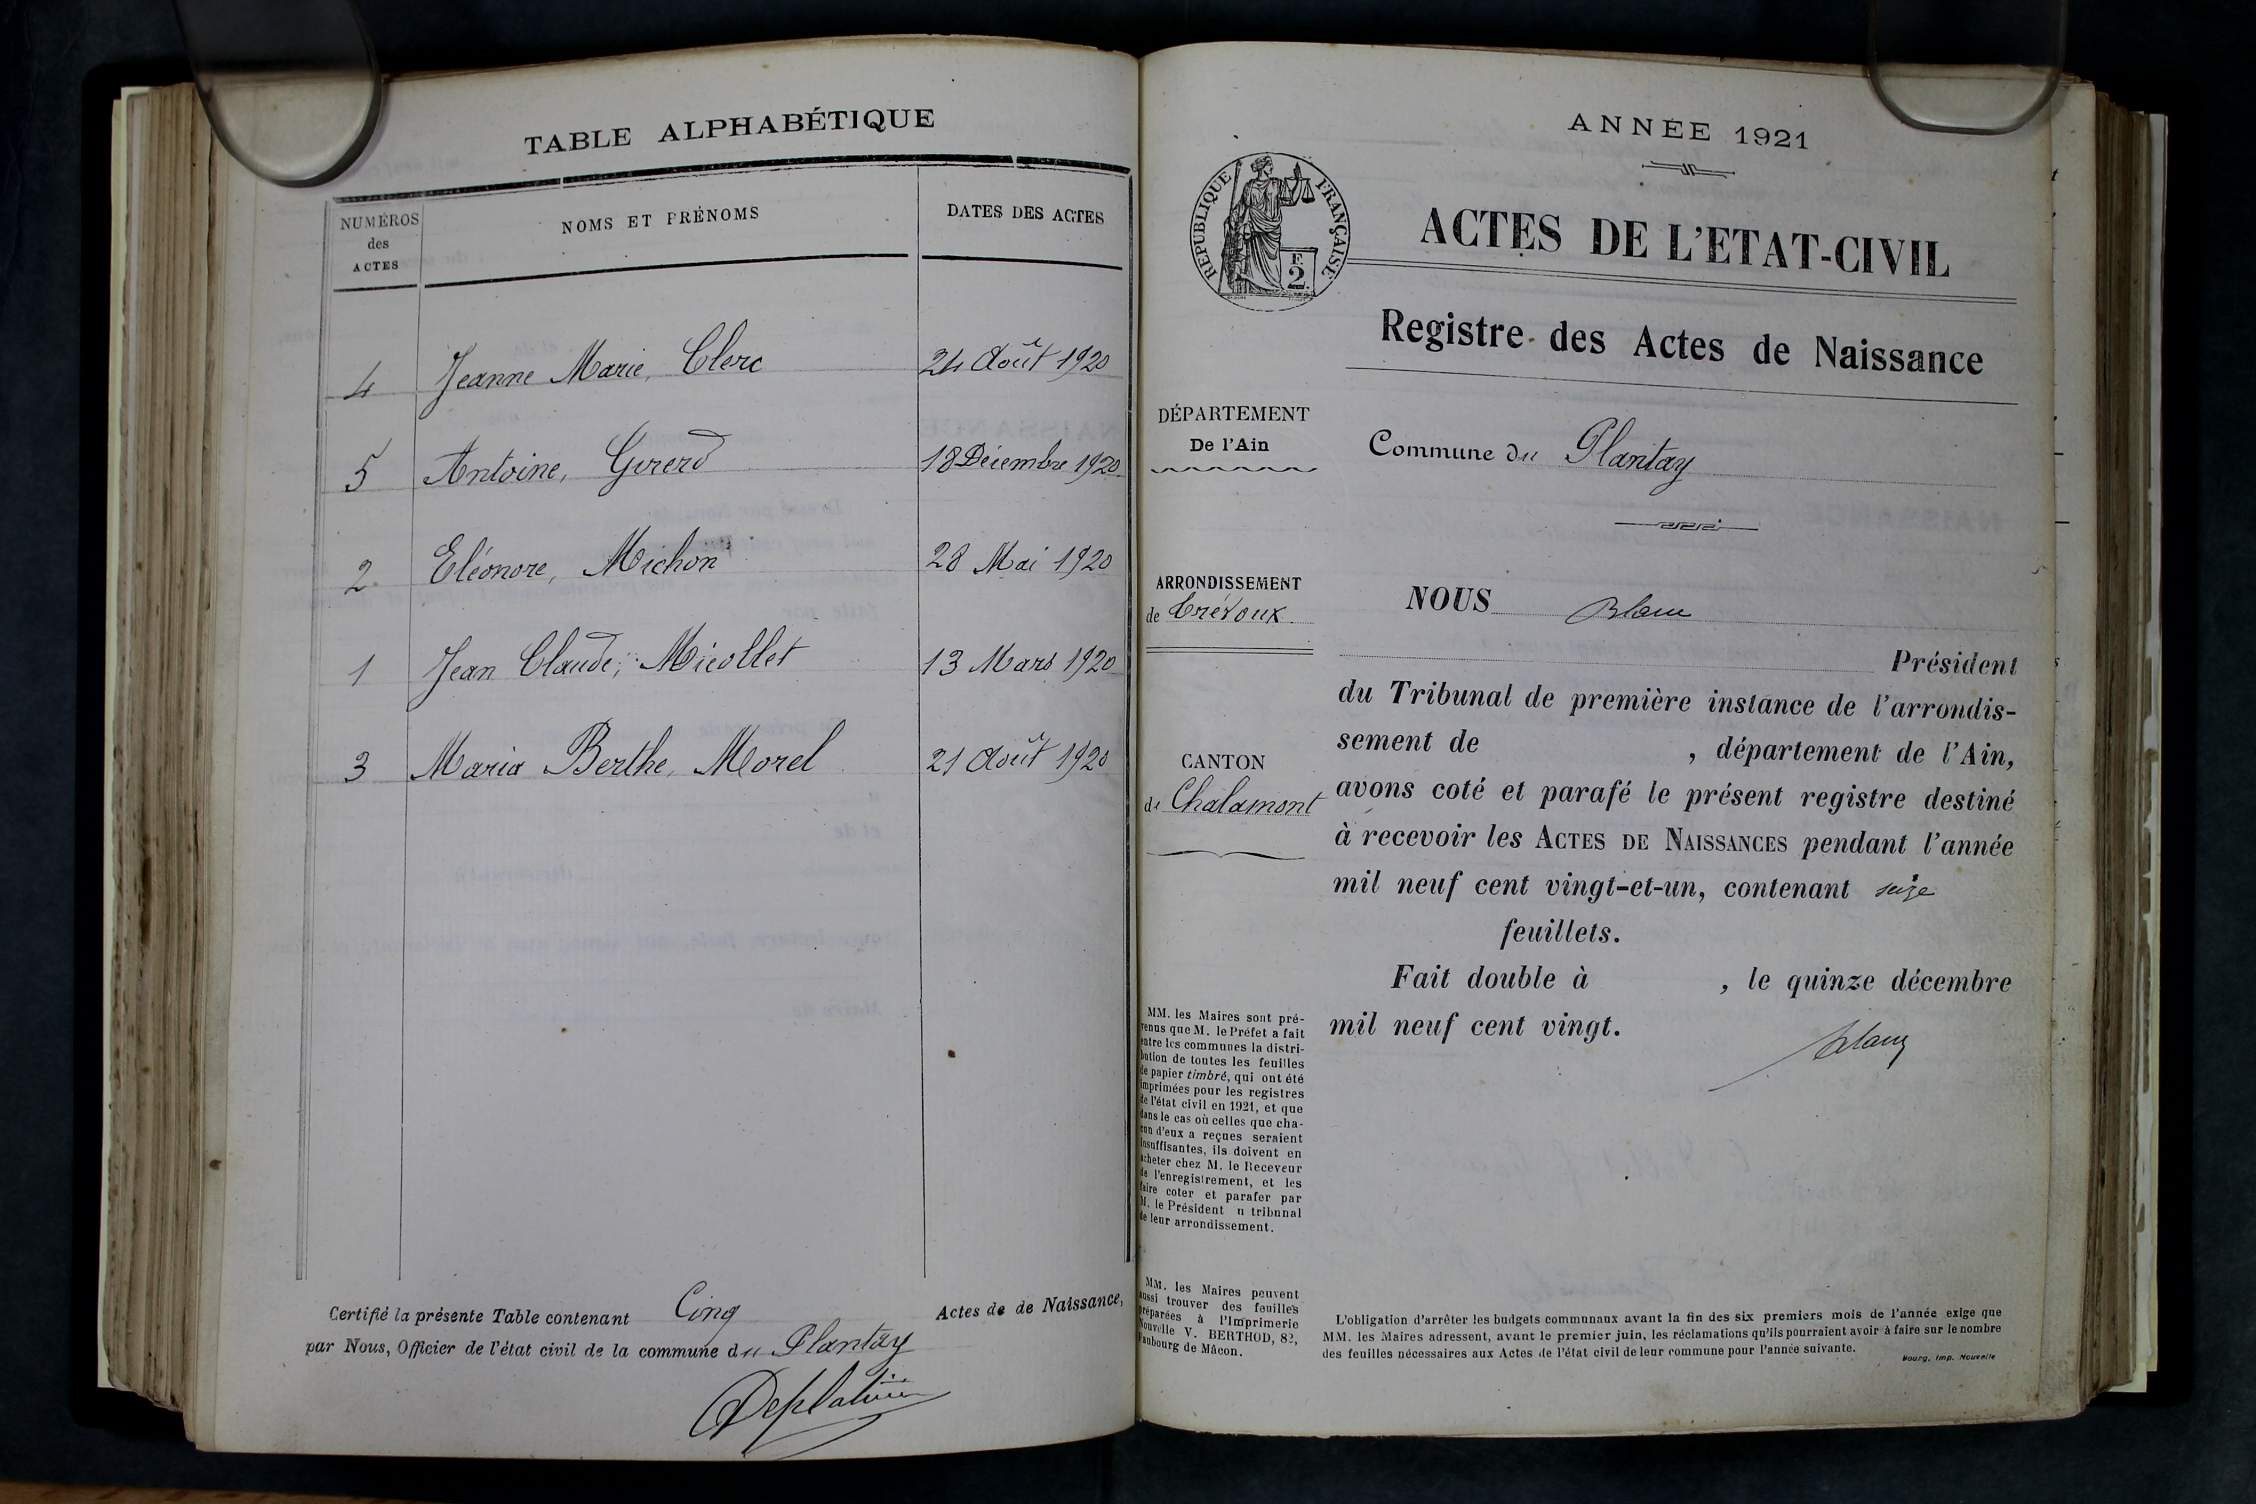 TABLE ALPHABÉTIQUE
NUMÉROS des ACTES
NOMS ET PRÉNOMS
DATES DES ACTES
4 Jeanne Marie, Clerc 24 Août 1920
5 Antoine, Girerd 18 Décembre 1920
2 Eléonore, Michon 28 Mai 1920
1 Jean Claude, Micollet 13 Mars 1920
3 Maria Berthe, Morel 21 Août 1920
Certifié la présente Table contenant Cinq Actes de de Naissance,
par Nous, Officier de l'état civil de la commune du Plantay
ANNÉE 1921
RÉPUBLIQUE FRANÇAISE
E
2
ACTES DE L'ETAT-CIVIL
Registre des Actes de Naissance
DÉPARTEMENT
De l'Ain
Commune du Plantay
ARRONDISSEMENT
de Trévoux
CANTON
de Chalamont
NOUS Blanc
Président
du Tribunal de première instance de l'arrondis-
sement de , département de l'Ain,
avons coté et parafé le présent registre destiné
à recevoir les ACTES DE NAISSANCES pendant l'année
mil neuf cent vingt-et-un, contenant seize
feuillets.
Fait double à , le quinze décembre
mil neuf cent vingt.
Blanc
MM. les Maires sont pré-
venus que M. le Préfet a fait
entre les communes la distri-
bution de toutes les feuilles
de papier timbré, qui ont été
imprimées pour les registres
de l'état civil en 1921, et que
dans le cas où celles que cha-
cun d'eux a reçues seraient
insuffisantes, ils doivent en
acheter chez M. le Receveur
de l'enregistrement, et les
faire coter et parafer par
M. le Président u tribunal
de leur arrondissement.
MM. les Maires peuvent
aussi trouver des feuilles
préparées à l'Imprimerie
Nouvelle V. BERTHOD, 82,
faubourg de Mâcon.
L'obligation d'arrêter les budgets communaux avant la fin des six premiers mois de l'année exige que
MM. les Maires adressent, avant le premier juin, les réclamations qu'ils pourraient avoir à faire sur le nombre
des feuilles nécessaires aux Actes de l'état civil de leur commune pour l'année suivante.
Bourg, Imp. Nouvelle